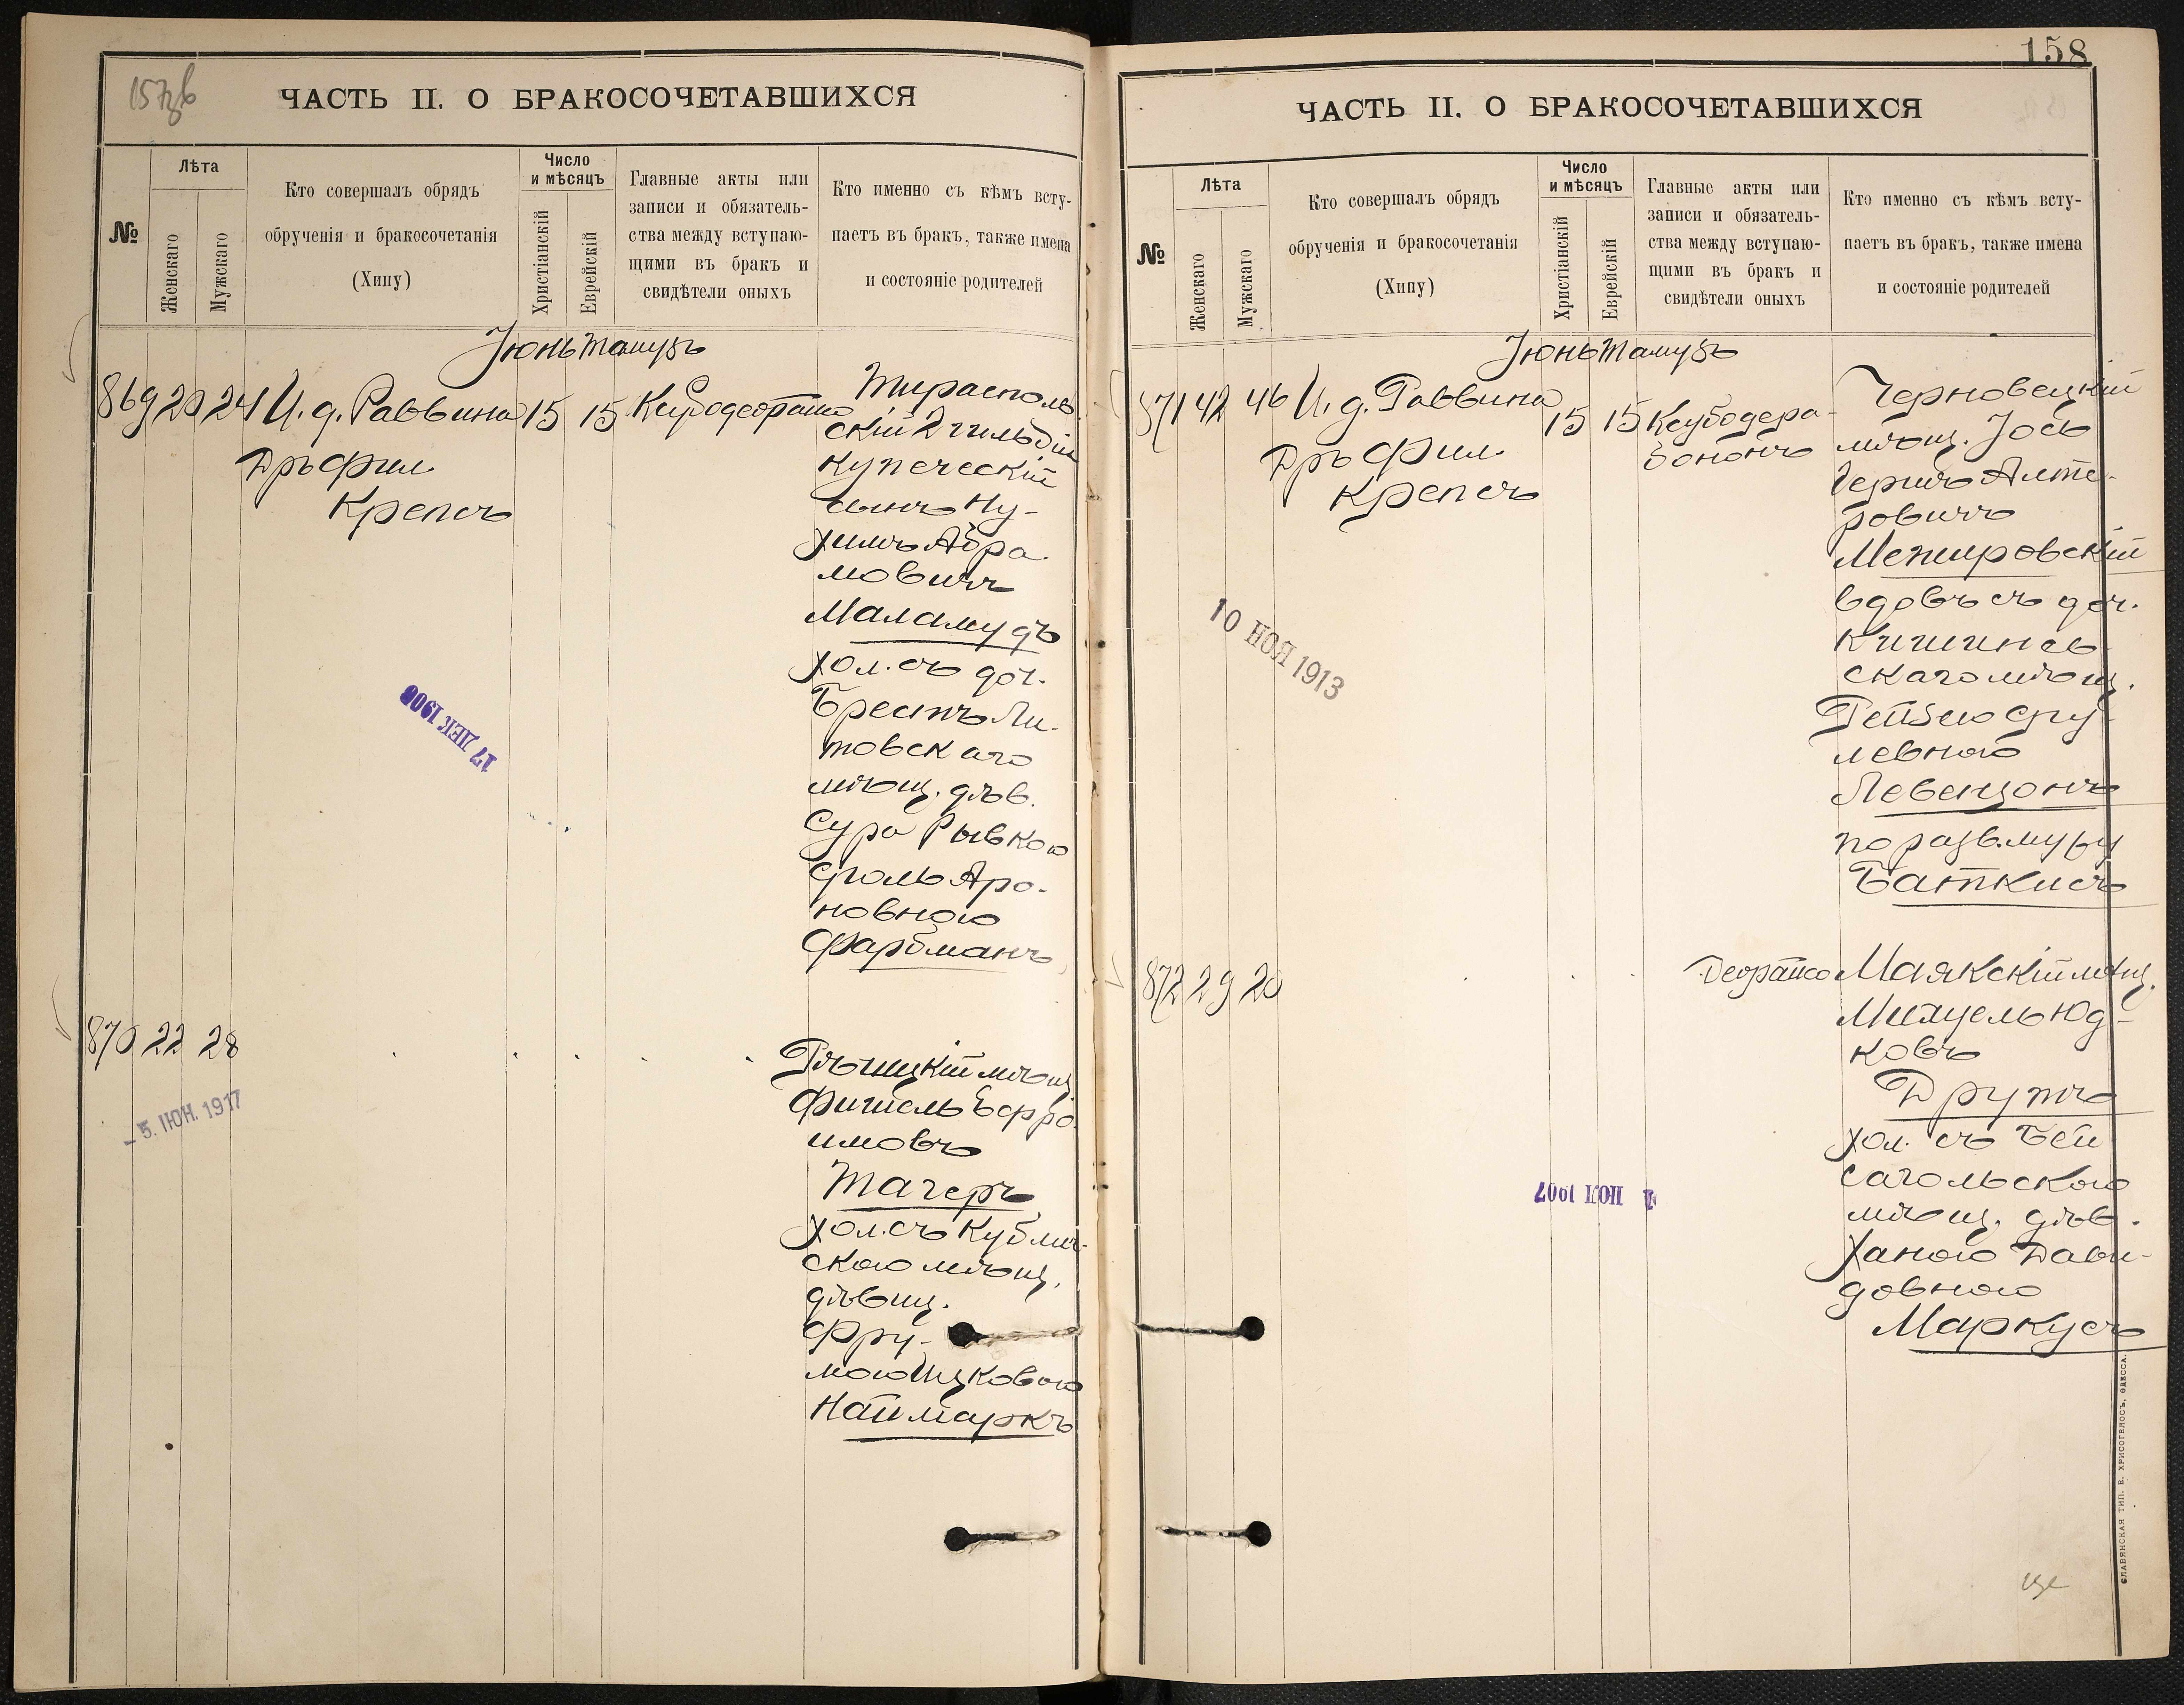 157об
ЧАСТЬ II. О БРАКОСОЧЕТАВШИХСЯ
№
Лѣта
Женскаго
Мужскаго
Кто совершалъ обрядъ
обрученія и бракосочетанія
(Хипу)
Число
и мѣсяцъ
Христіанскій
Еврейскій
Главные акты или
записи и обязатель-
ства между вступаю-
щими въ бракъ и
свидѣтели оныхъ
Кто именно съ кѣмъ всту-
паетъ въ бракъ, также имена
и состояніе родителей
Іюнь Тамузъ
869 20 24 И. д. Раввина 15 15
Дръ Фил.
Крепсъ
Тирасполь-
скій 2 гильдіи
купеческій
сынъ Ну-
химъ Абра-
мовичъ
Маламудъ
хол. съ доч.
Брестъ Ли-
товскаго
мѣщ. дѣв.
Сура Рывкою
Фроль Аро-
новною
Фарбманъ
17 ДЕК 1908
870 22 28
Рѣчицкій мѣщ.
Фишель Ефро-
имовъ
Тагеръ
хол. съ Кублич-
скою мѣщ.
дѣвиц.
Фру-
мою Ицковою
Наймаркъ
5. ІЮН. 1917
158
ЧАСТЬ II. О БРАКОСОЧЕТАВШИХСЯ
№
Лѣта
Женскаго
Мужскаго
Кто совершалъ обрядъ
обрученія и бракосочетанія
(Хипу)
Число
и мѣсяцъ
Христіанскій
Еврейскій
Главные акты или
записи и обязатель-
ства между вступаю-
щими въ бракъ и
свидѣтели оныхъ
Кто именно съ кѣмъ всту-
паетъ въ бракъ, также имена
и состояніе родителей
Іюнь Тамузъ
871 42 46 И. д. Раввина 15 15
Дръ Фил.
Крепсъ
Черновецкій
мѣщ. Іось
Гершъ Алте-
ровичъ
Межировскій
вдовъ съ доч.
Кишинев-
скаго мѣщ.
Рейзею Сру-
левною
Левензонъ
по разв. мужу
Баткисъ
10 НОЯ 1913
872 29 20
Маякскій мѣщ.
Михуель Юд-
ковъ
Друтъ
хол. съ Бей-
сагольскою
мѣщ. дѣв.
Ханою Дави-
довною
Маркусъ
1907
СЛАВЯНСКАЯ ТИП. Е. ХРИСОГЕЛОСЪ, ОДЕССА.